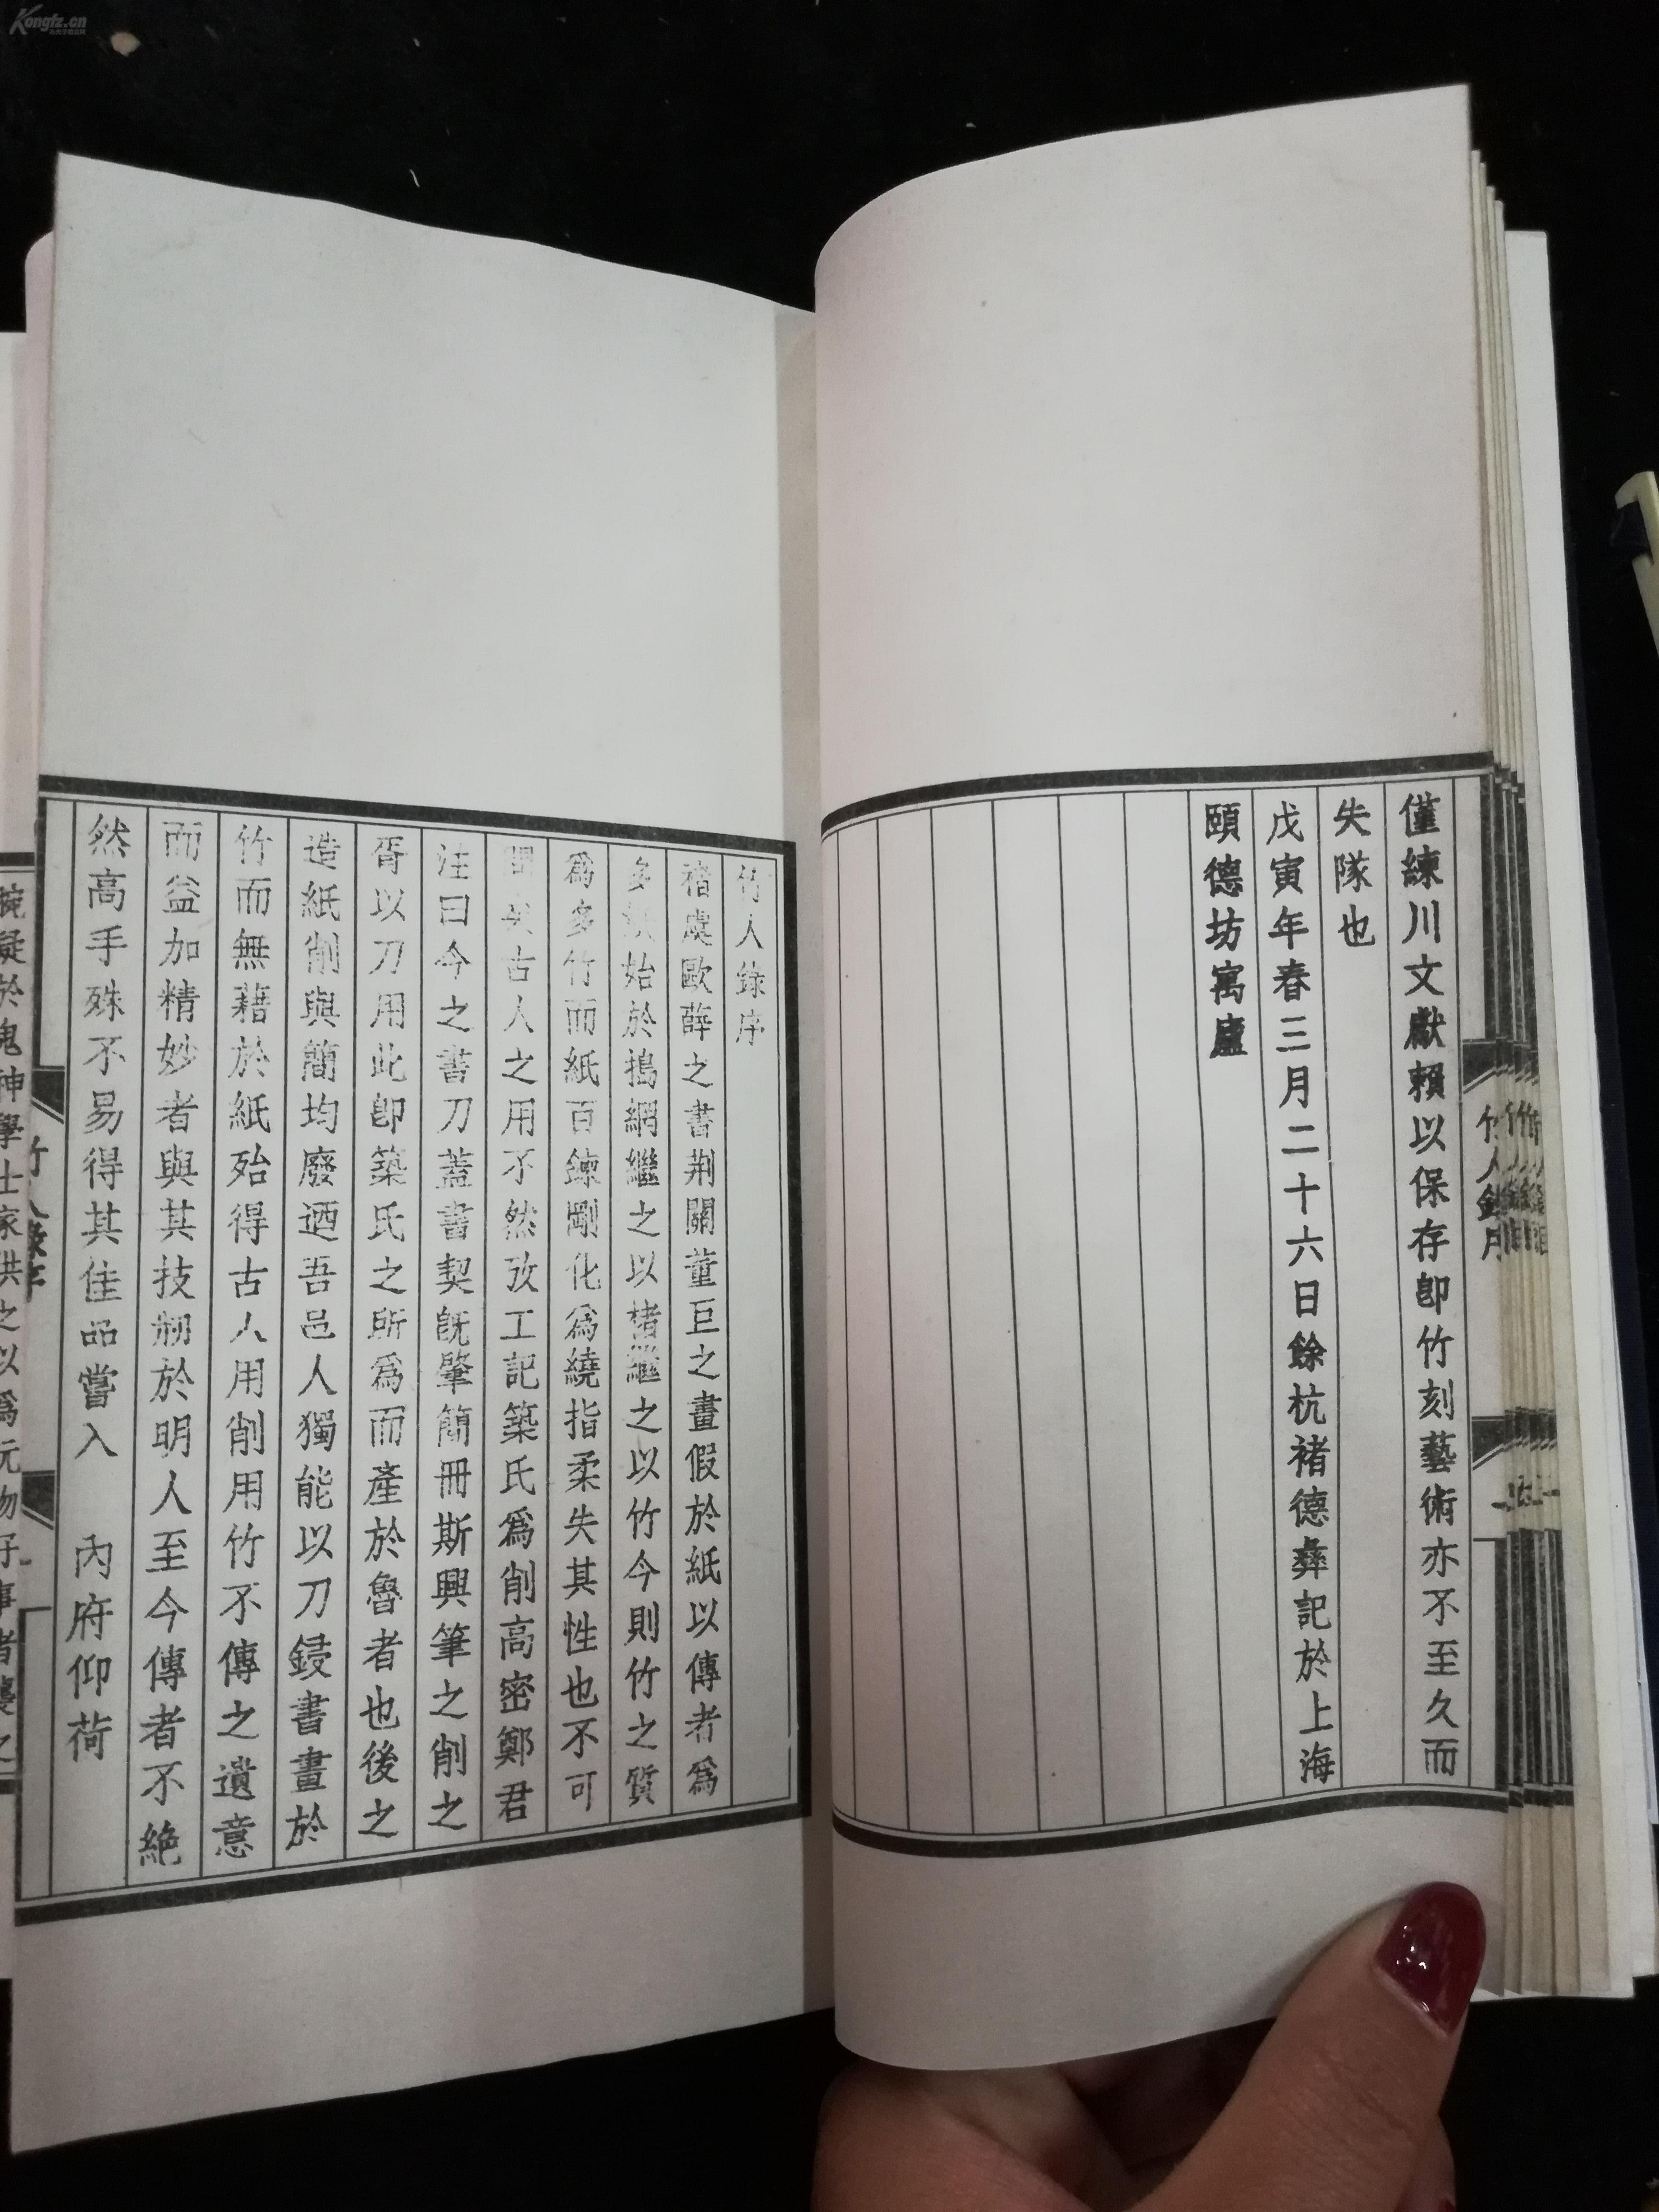 Kongfz.cn
僅練川文獻賴以保存卽竹刻藝術亦不至久而
失隊也
戊寅年春三月二十六日餘杭褚德彝記於上海
頤德坊寓廬
竹人錄序
褚虞歐薛之書荆關董巨之畫假於紙以傳者爲
多紙始於搗網繼之以楮繼之以竹今則竹之質
爲多竹而紙百鍊剛化爲繞指柔失其性也不可
謂失古人之用不然攷工記築氏爲削高密鄭君
注曰今之書刀蓋書契旣肇簡冊斯興筆之削之
胥以刀用此卽築氏之所爲而產於魯者也後之
造紙削與簡均廢迺吾邑人獨能以刀鋟書畫於
竹而無藉於紙殆得古人用削用竹不傳之遺意
而益加精妙者與其技剏於明人至今傳者不絶
然高手殊不易得其佳品嘗入 內府仰荷